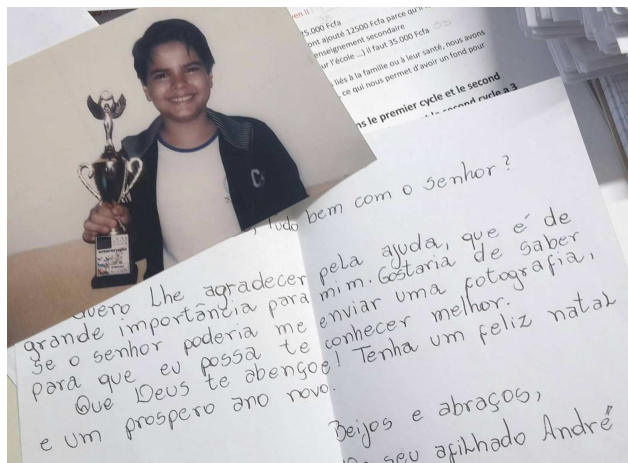 5.000 Fcfa
ont ajouté 12500 Fcfa parce qu'il
enseignement secondaire
ur l'école ...) il faut 35.000 Fcfa
liés à la famille ou à leur santé, nous avons
ce qui nous permet d'avoir un fond pour
ns le premier cycle et le second
second cycle a 3
, tudo bem com o senhor?
Quero Lhe agradecer pela ajuda, que é de
grande importância para mim. Gostaria de saber
se o senhor poderia me enviar uma fotografia,
para que eu possa te conhecer melhor.
Que Deus te abençoe! Tenha um feliz natal
e um prospero ano novo.
Beijos e abraços,
seu afilhado André